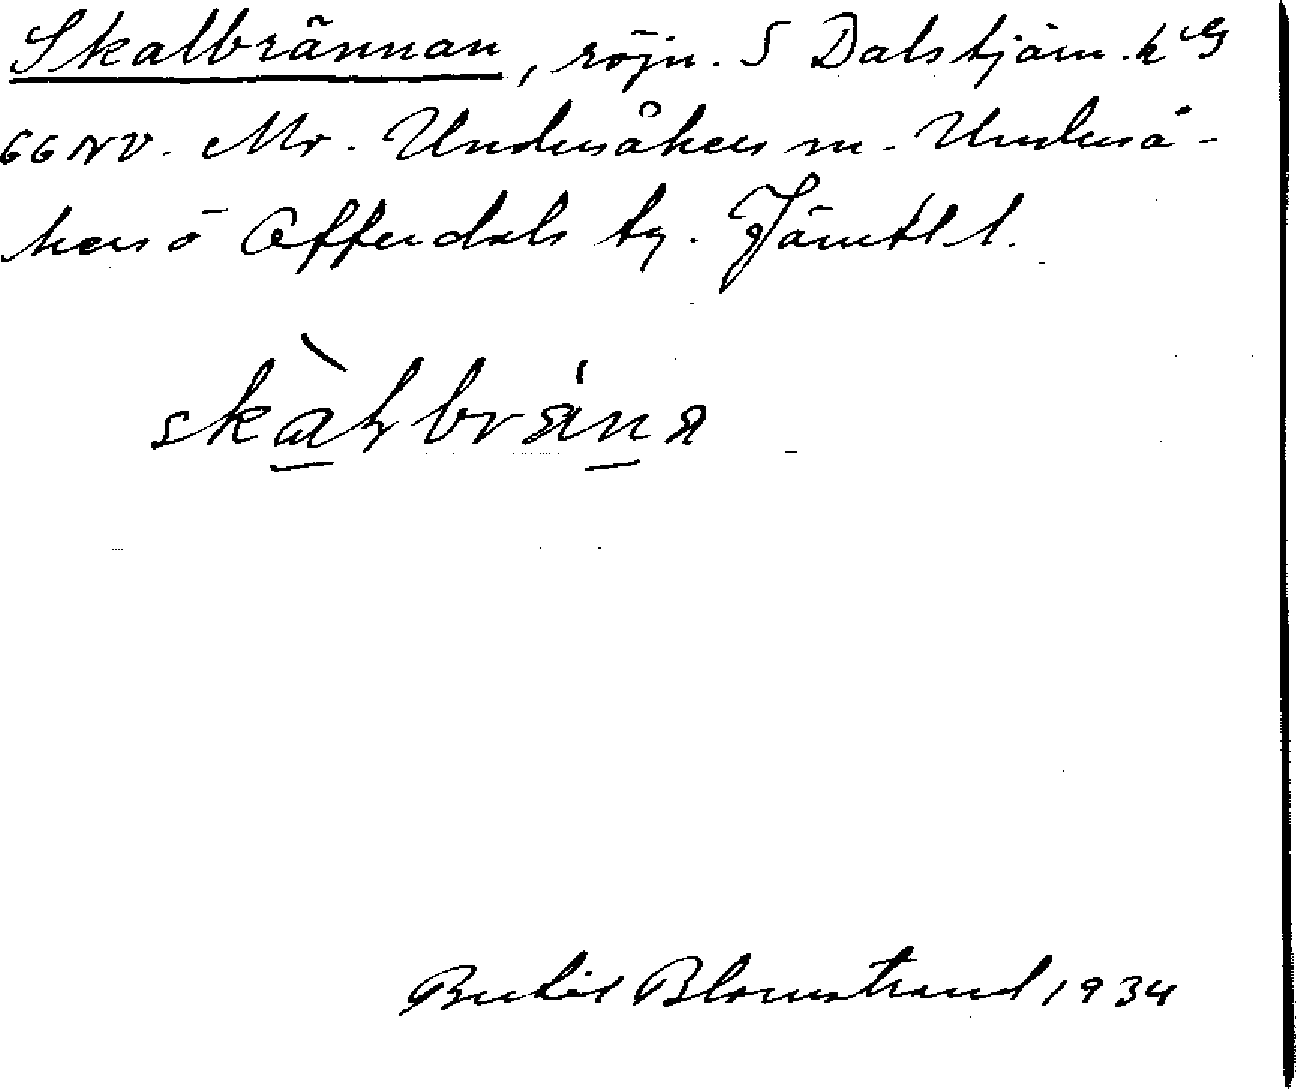 Skalbrännan, röjn. S Dalstjärn. k bl
66 NV. Mo. Undersåkers sn. Underså-
kers o Offerdals tg. Jämtl l.
skàḷbräṉa
Bertil Blomstrand 1934